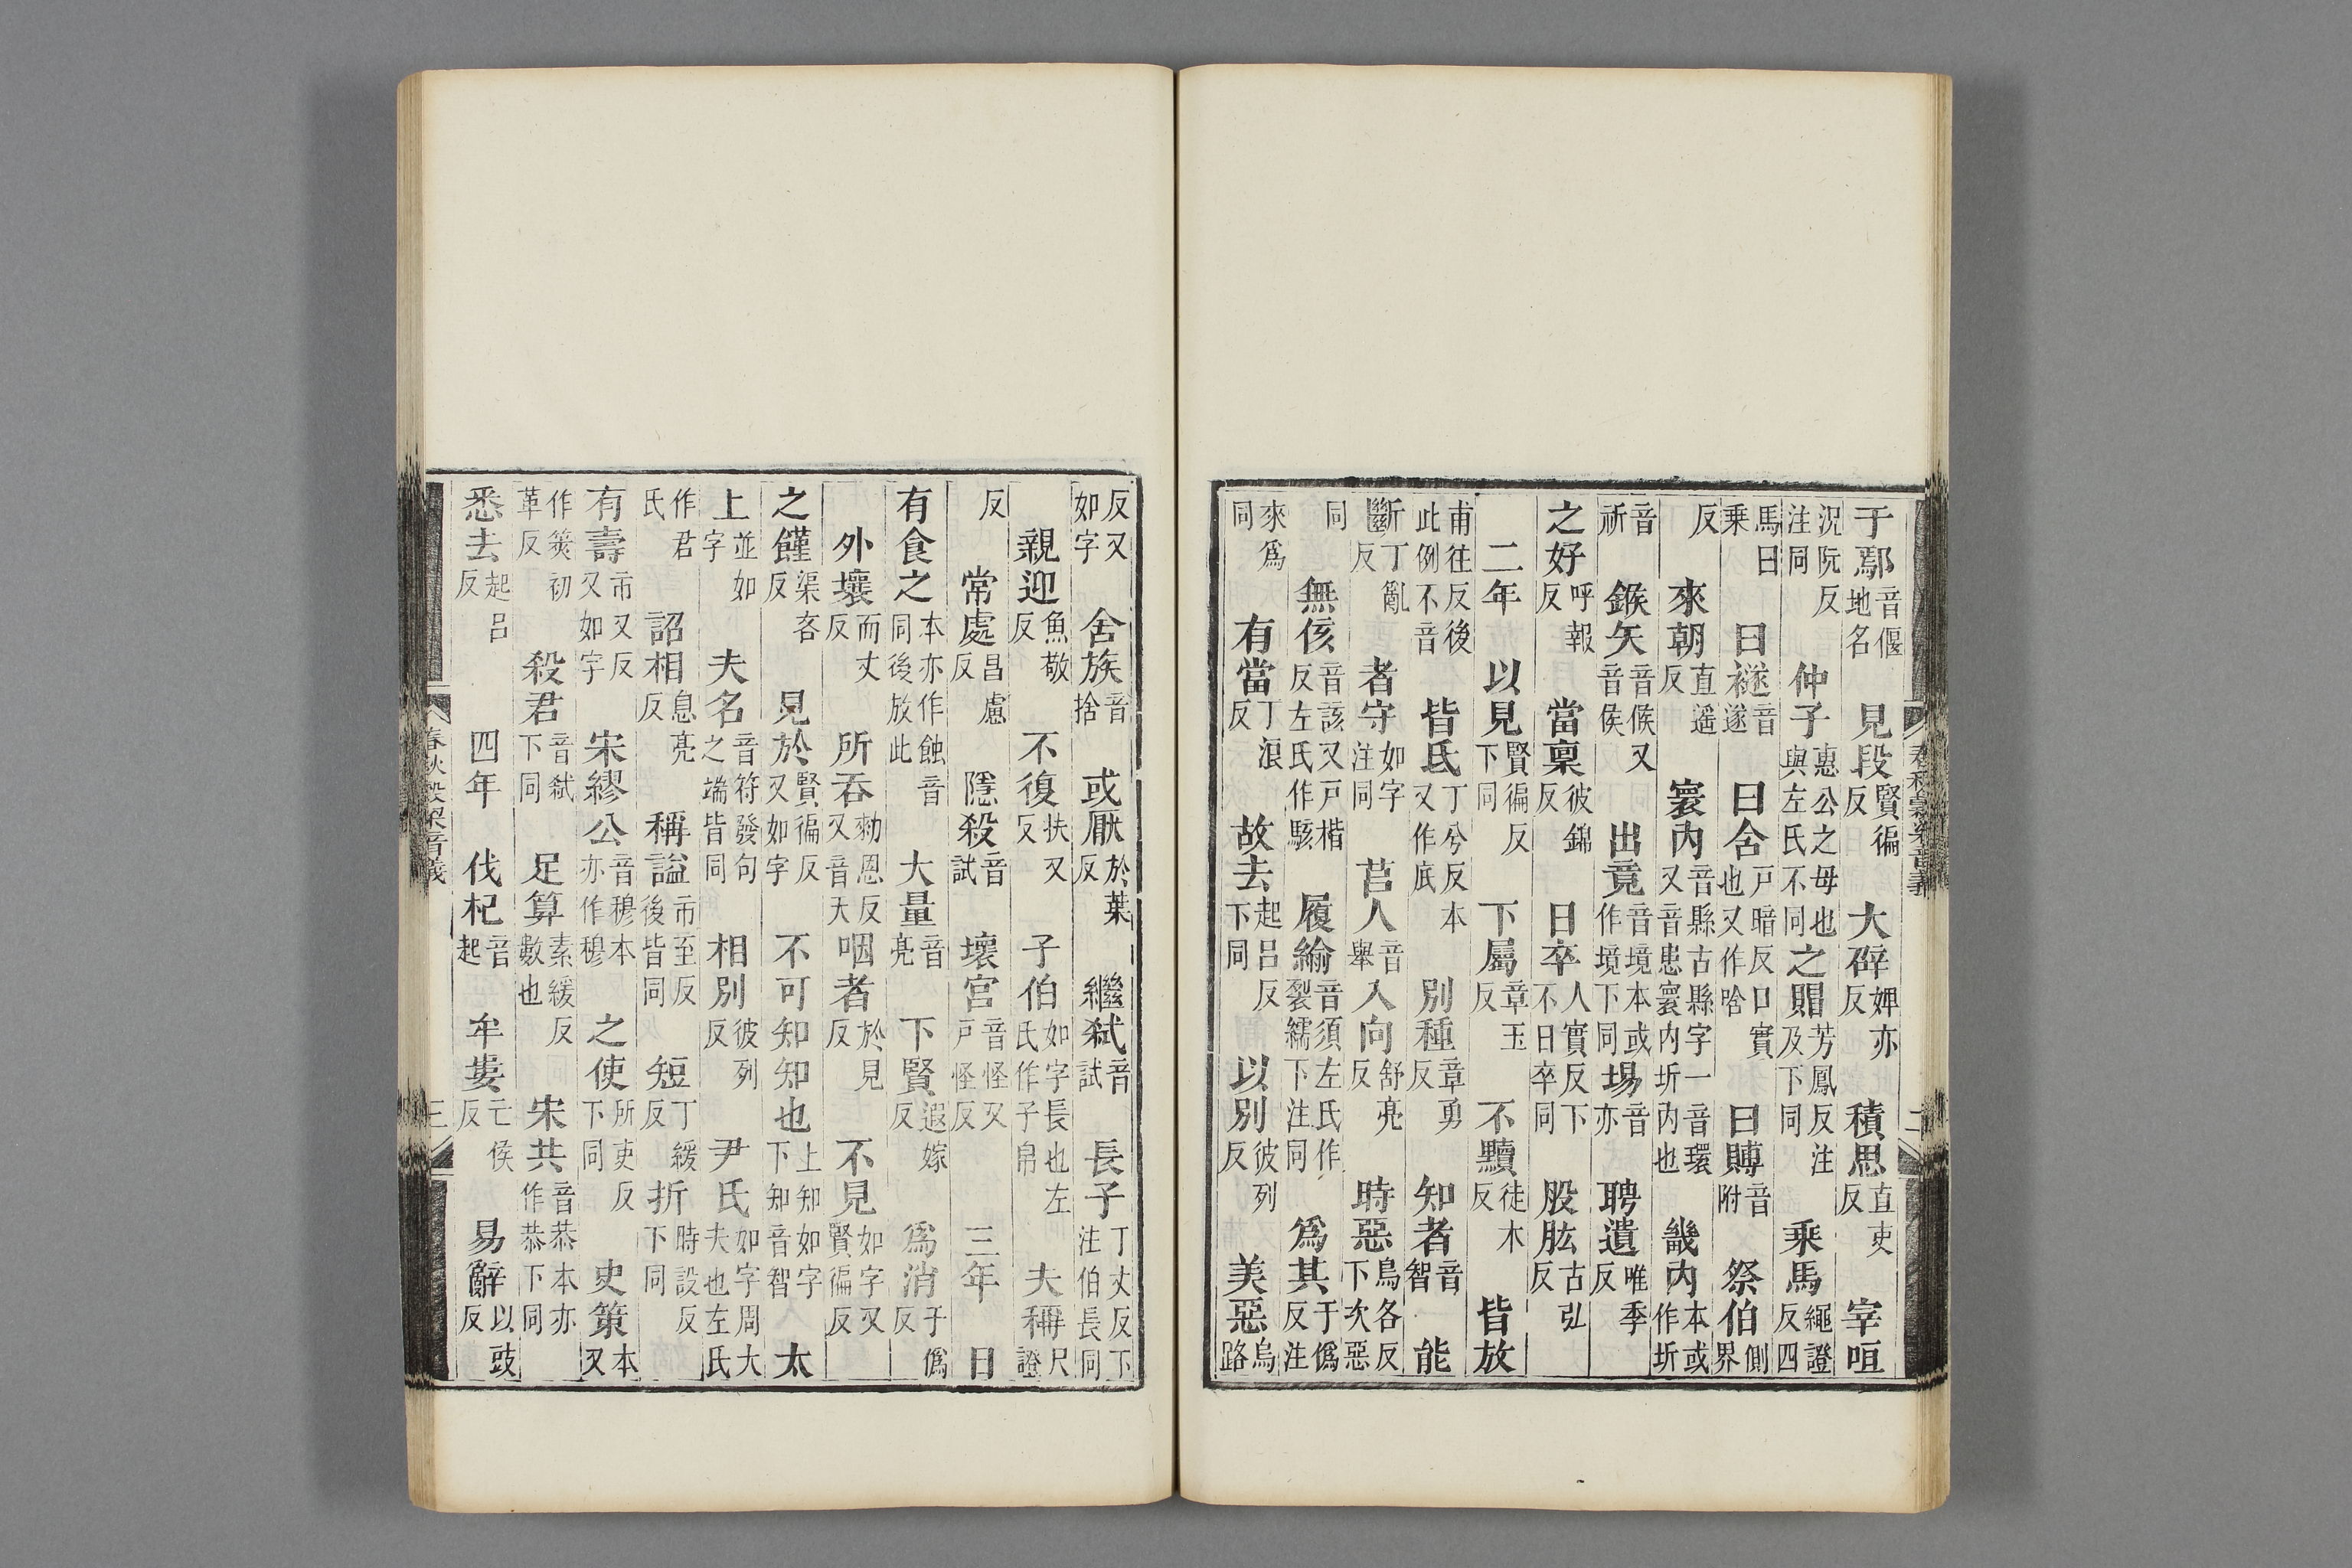 于鄢音偃地名 見段賢徧反 大硸婢亦反 積思直吏反 宰咺
況阮反注同 仲子惠公之母也與左氏不同 之賵芳鳳反注及下同 乘馬繩證反四
馬曰乘 曰襚音遂 曰舍戸暗反口實也又作唅 曰賻音附 祭伯側界
反 來朝直遥反 寰内音縣古縣字一音患寰内圻内也音環又 畿内本或作圻
音祈 鍭矢音候又音侯 出竟音境本或作境下同 埸音亦 聘遺唯季反
之好呼報反 當稟彼錦反 日卒人實反下不日卒同 股肱古弘反
二年 以見賢徧反下同 下屬章玉反 不黷徒木反 皆放
甫往反後此例不音 皆氐丁兮反本又作底 別種章勇反 知者音智 能
斷丁亂反 者守如字注同 莒人音舉 入向舒亮反 時惡烏各反下次惡
同 無侅音該又戸楷反左氏作駭 履緰音須左氏作裂繻下注同 爲其于僞反注
來爲同 有當丁浪反 故去起呂反下同 以別彼列反 美惡烏路
春秋穀梁音義 二
反又如字 舍族音捨 或厭於葉反 繼弑音試 長子丁丈反下注伯長同
親迎魚敬反 不復扶又反 子伯如字長也左氏作子帛 夫稱尺證
反 常處昌慮反 隱殺音試 壞宮音怪又戸怪反 三年 日
有食之本亦作蝕音同後放此 大量音亮 下賢遐嫁反 爲消于僞反
外壤而丈反 所吞勑恩反又音天 咽者於見反 不見如字又賢徧反
之饉渠吝反 見於賢徧反又如字 不可知知也上知如字下知音智 太
上並如字 夫名音符發句之端皆同 相別彼列反 尹氏如字周大夫也左氏
作君氏 詔相息亮反 稱謚市至反後皆同 短丁緩反 折時設反下同
有壽市又反又如字 宋繆公音穆本亦作穆 之使所吏反下同 史策本又
作筴初革反 殺君音弑下同 足算素緩反數也 宋共音恭本亦作恭下同
悉去起呂反 四年 伐杞音起 牟婁亡侯反 易辭以豉反
春秋穀梁音義 三